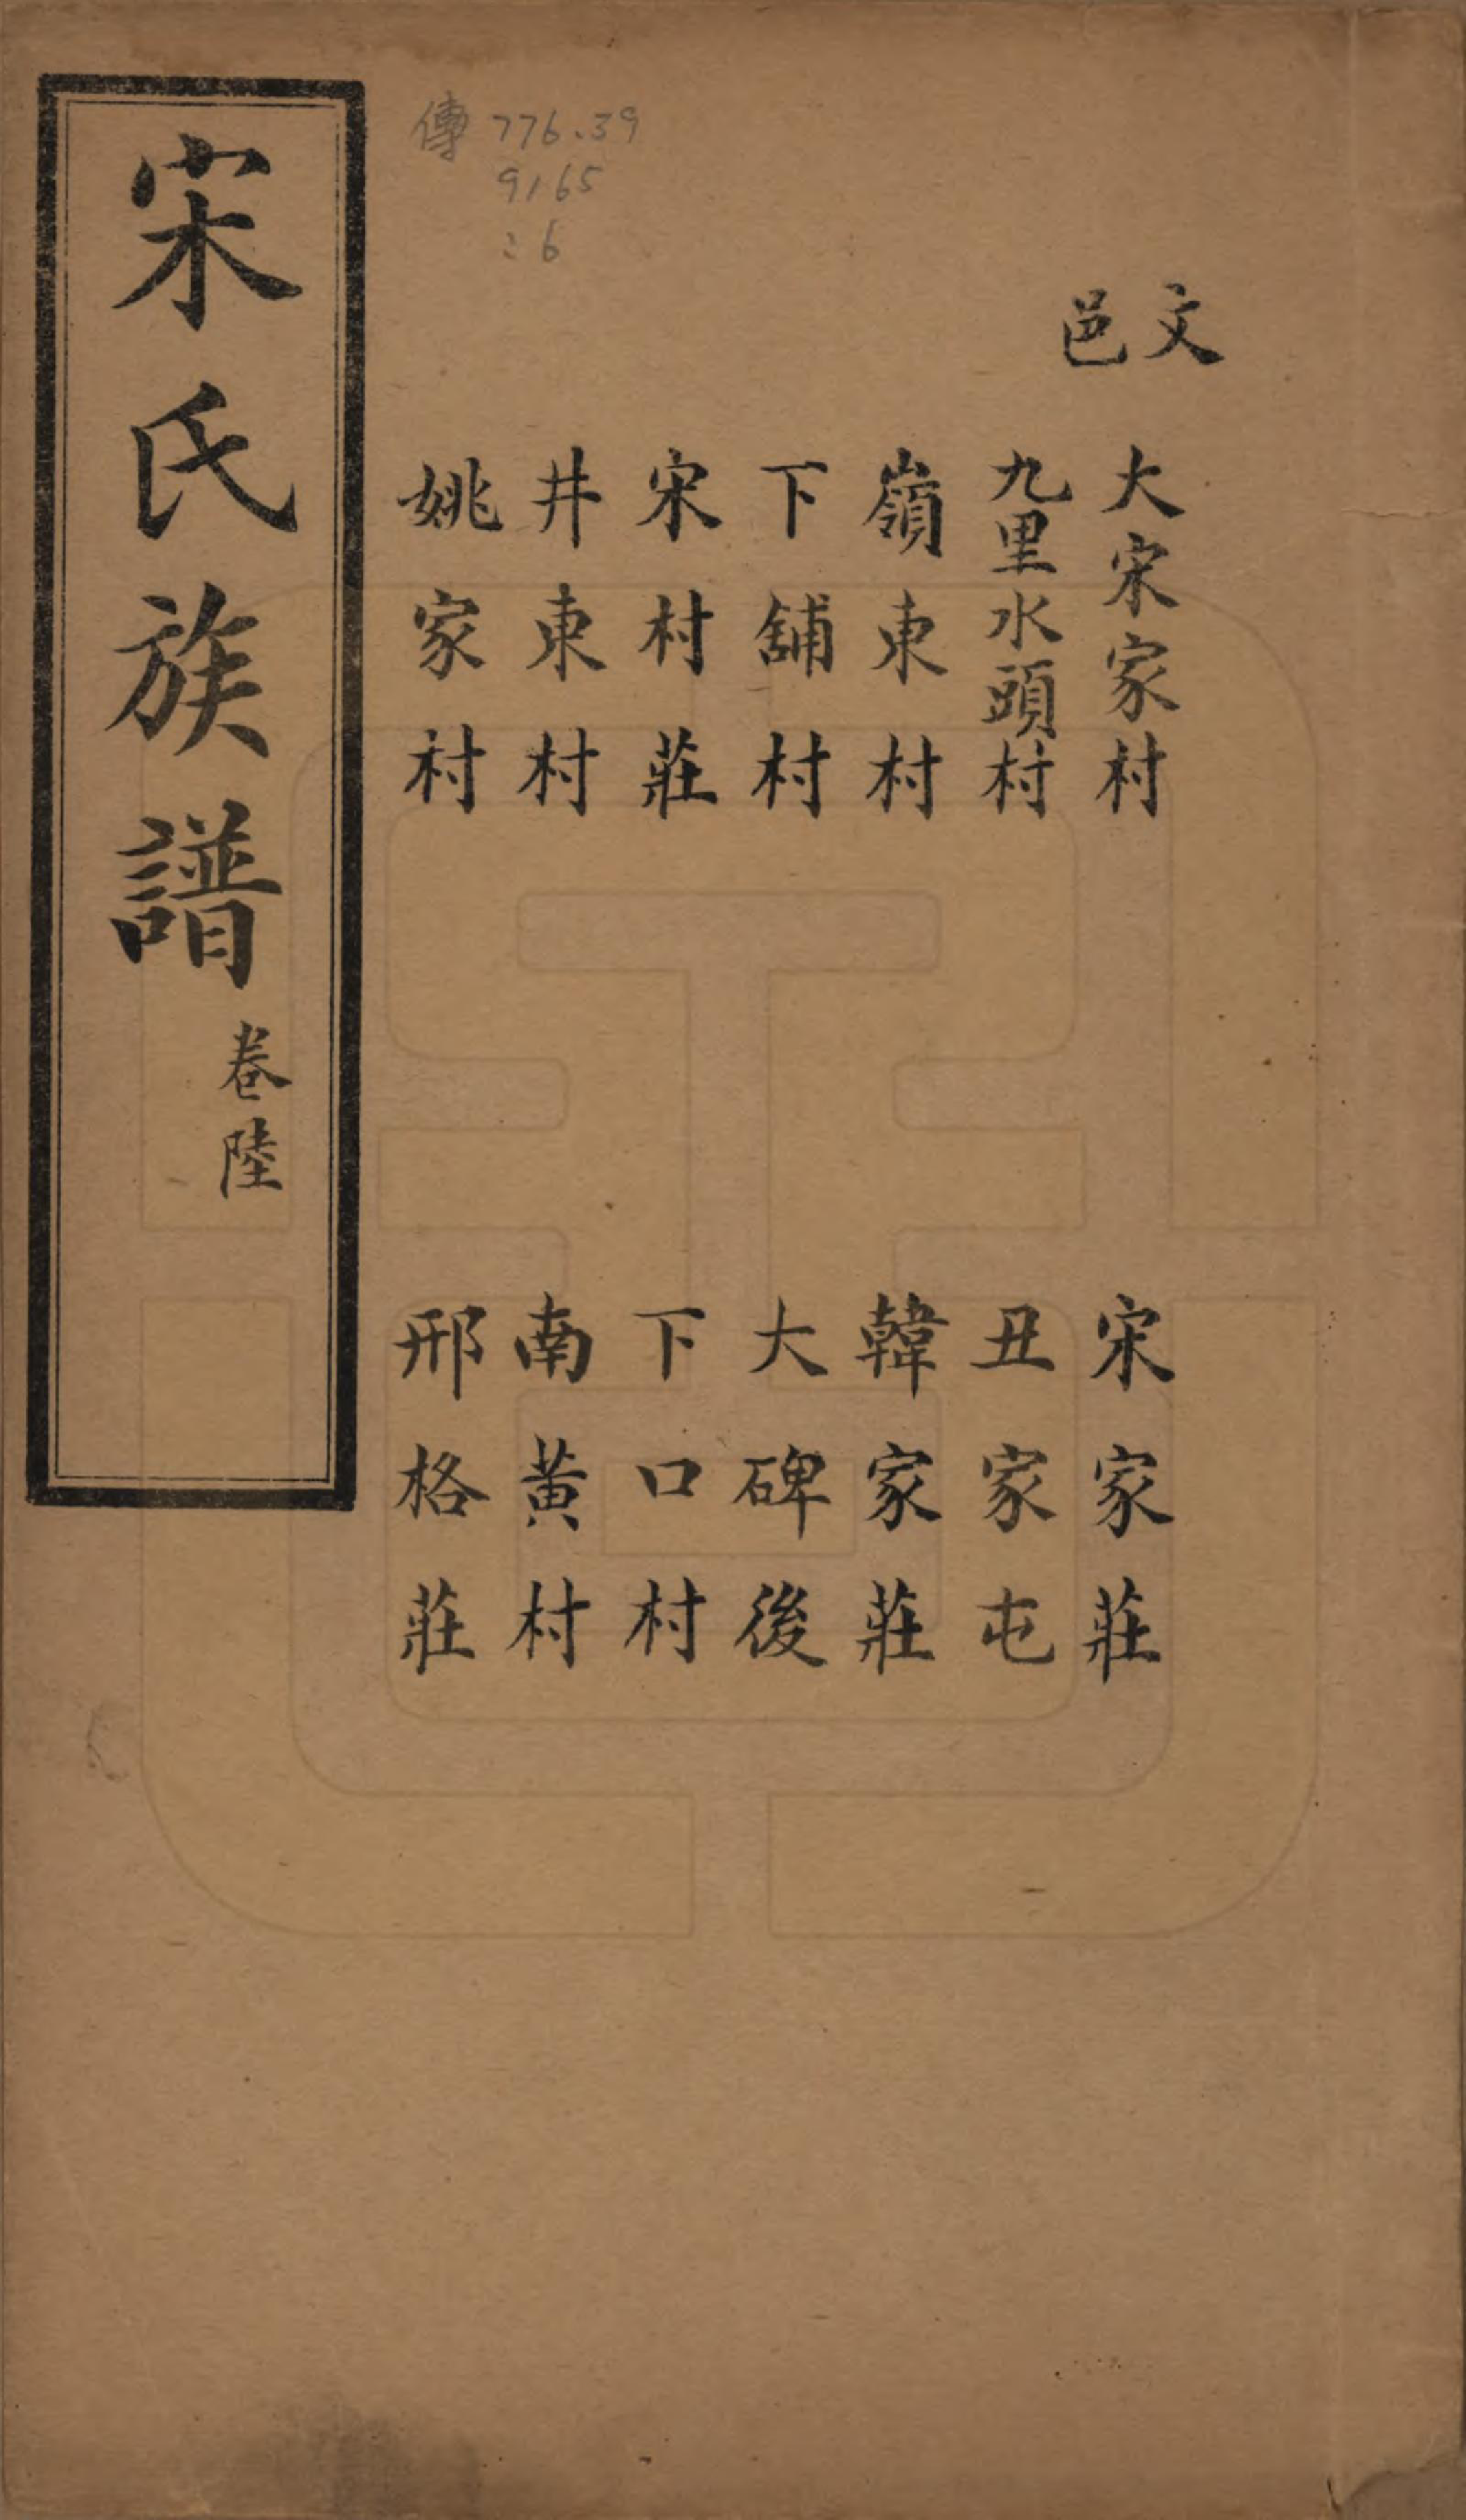 文邑
大宋家村
九里水頭村
嶺東村
下舖村
宋村莊
井東村
姚家村
宋家莊
丑家屯
韓家莊
大碑後
下口村
南黃村
邢格莊
宋氏族譜 卷陸
傳 776.39
9165
:6